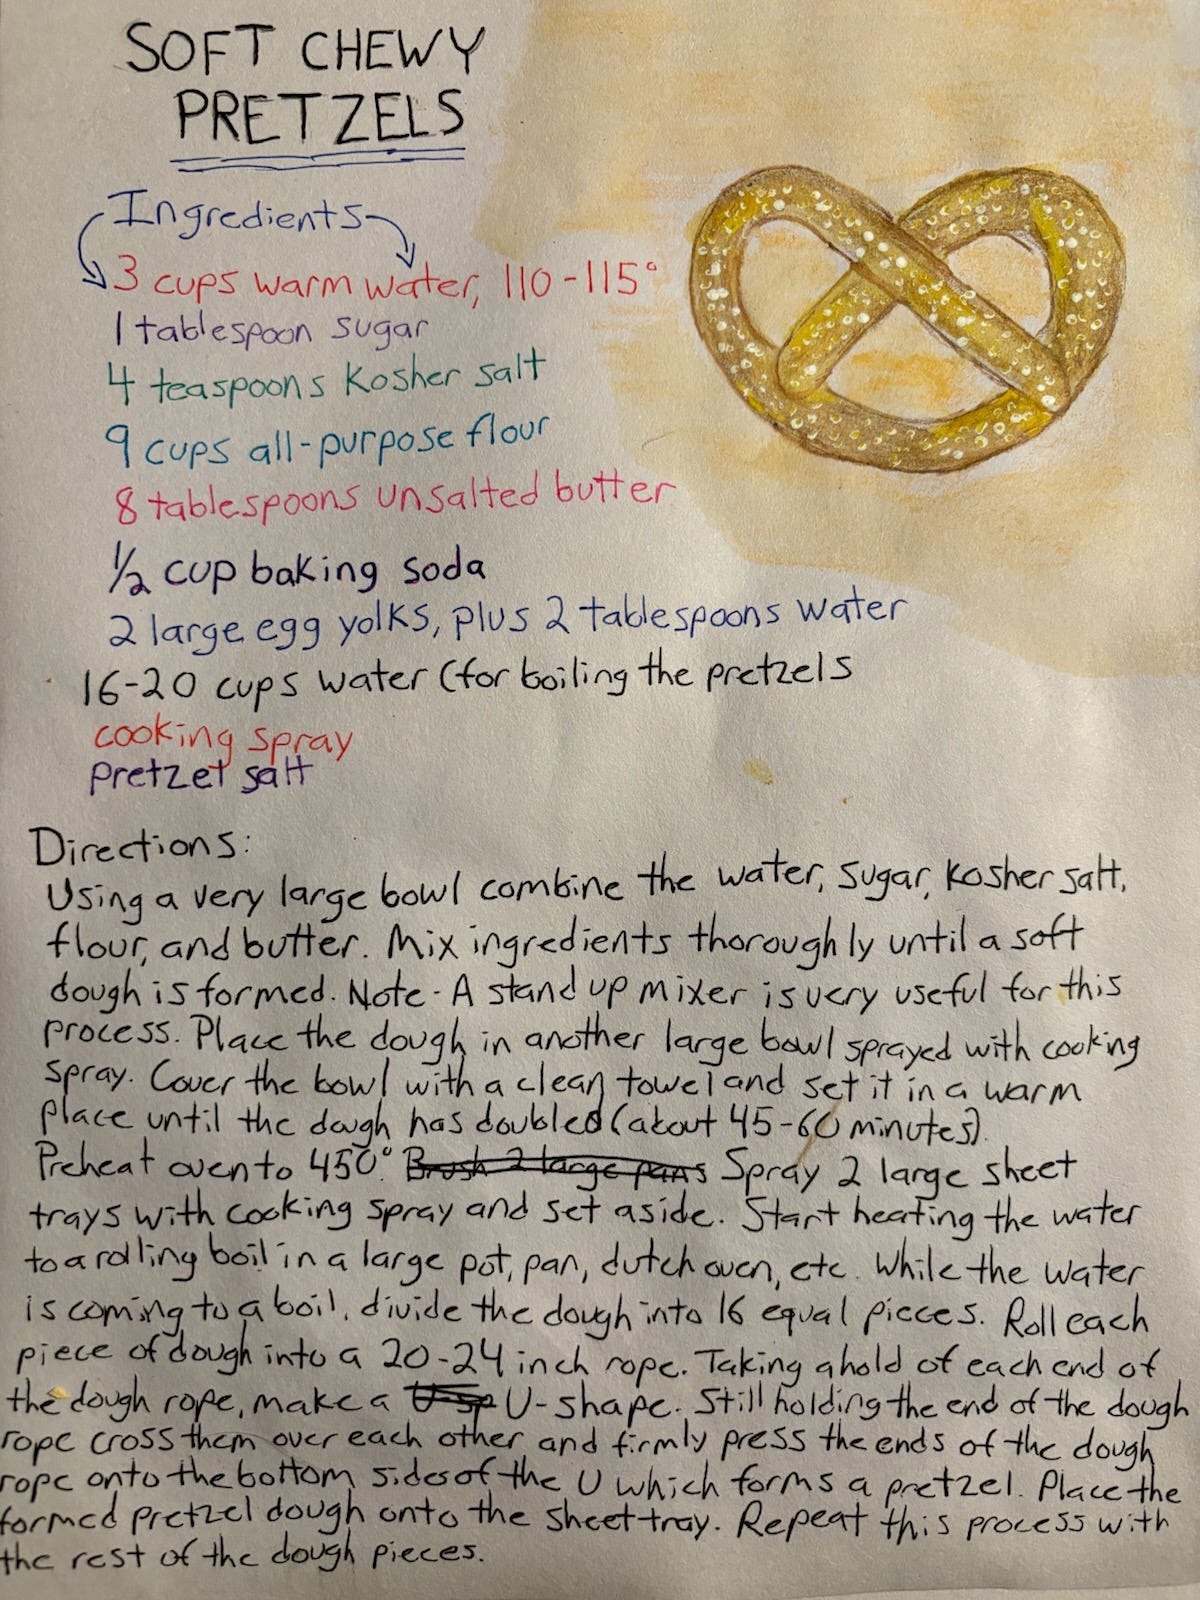 SOFT CHEWY
PRETZELS
Ingredients
3 cups warm water, 110-115°
1 tablespoon sugar
4 teaspoons Kosher salt
9 cups all-purpose flour
8 tablespoons unsalted butter
1/2 cup baking soda
2 large egg yolks, plus 2 tablespoons water
16-20 cups water (for boiling the pretzels
cooking spray
pretzel salt
Directions:
Using a very large bowl combine the water, sugar, Kosher salt,
flour, and butter. Mix ingredients thoroughly until a soft
dough is formed. Note - A stand up mixer is very useful for this
process. Place the dough in another large bowl sprayed with cooking
spray. Cover the bowl with a clean towel and set it in a warm
place until the dough has doubled (about 45-60 minutes).
Preheat oven to 450° Brush 2 large pans Spray 2 large sheet
trays with cooking spray and set aside. Start heating the water
to a rolling boil in a large pot, pan, dutch oven, etc. While the water
is coming to a boil, divide the dough into 16 equal pieces. Roll each
piece of dough into a 20-24 inch rope. Taking ahold of each end of
the dough rope, make a U-sp U-shape. Still holding the end of the dough
rope cross them over each other and firmly press the ends of the dough
rope onto the bottom sides of the U which forms a pretzel. Place the
formed pretzel dough onto the sheet tray. Repeat this process with
the rest of the dough pieces.